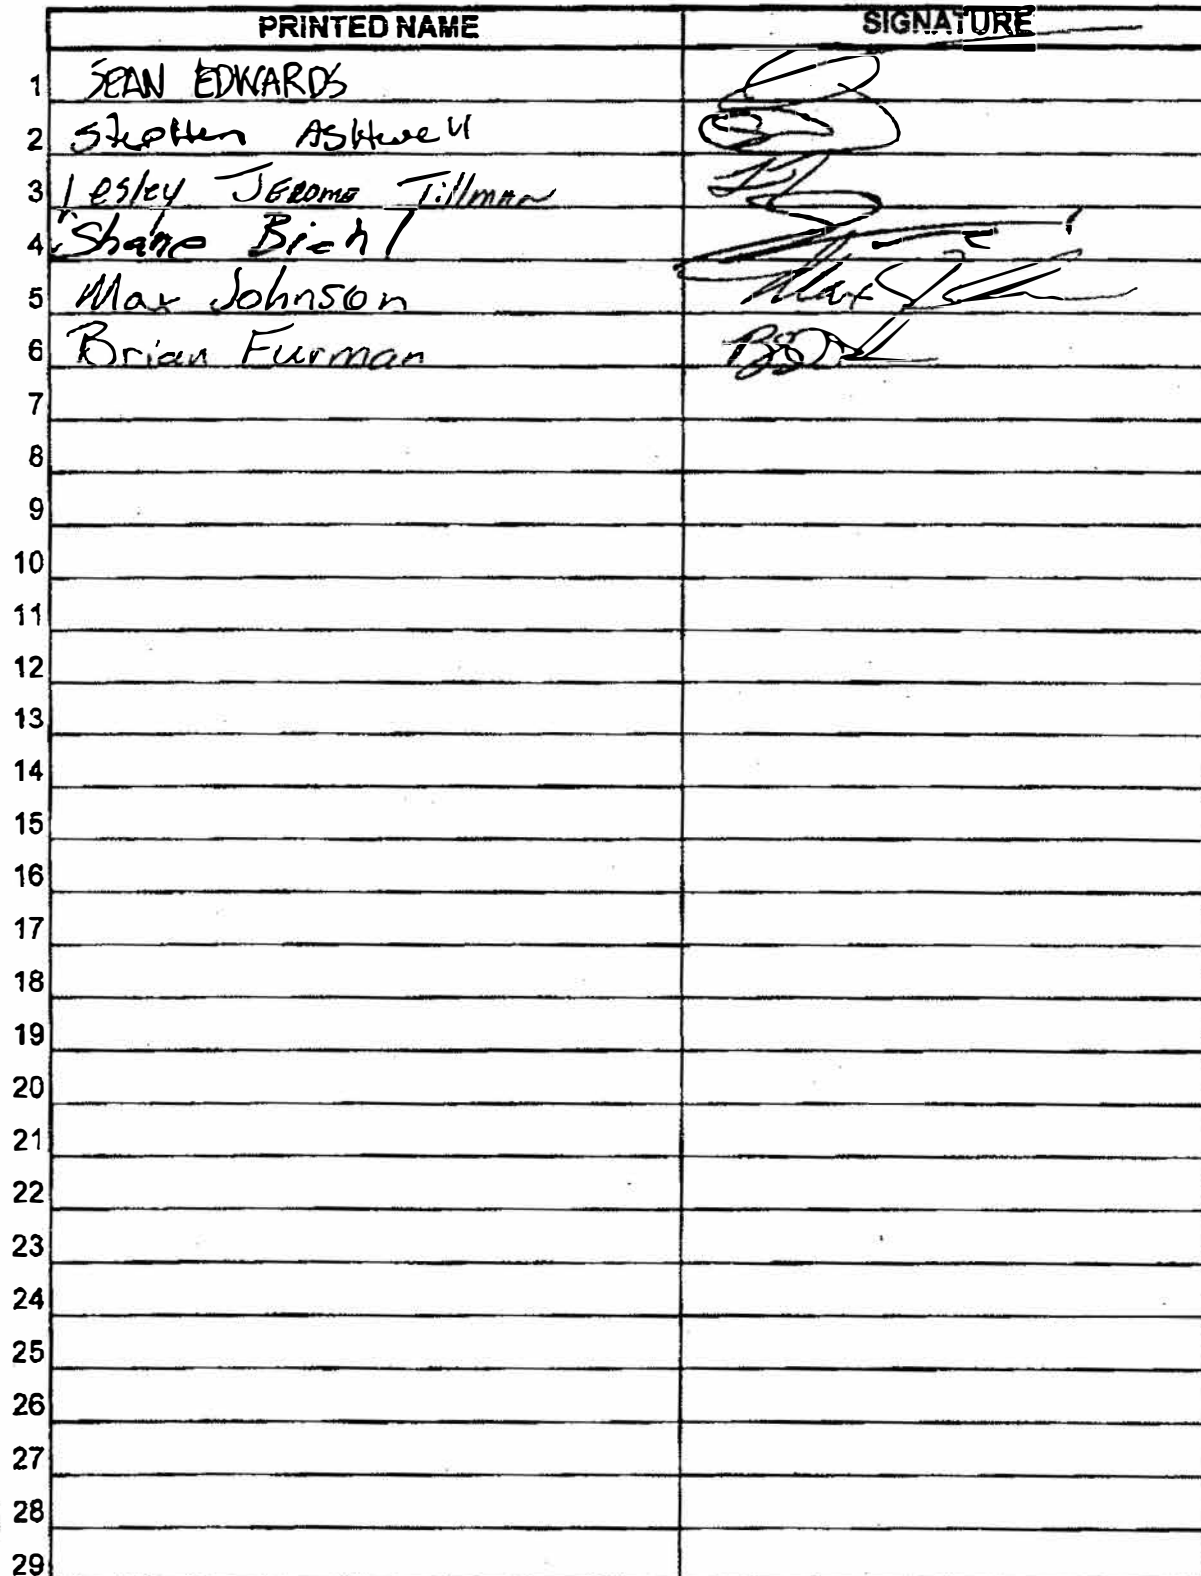 PRINTED NAME SIGNATURE
1 SEAN EDWARDS
2 Stephen Ashwell
3 Lesley JEROME Tillman
4 Shane Biehl
5 Max Johnson Max
6 Brian Furman
7
8
9
10
11
12
13
14
15
16
17
18
19
20
21
22
23
24
25
26
27
28
29